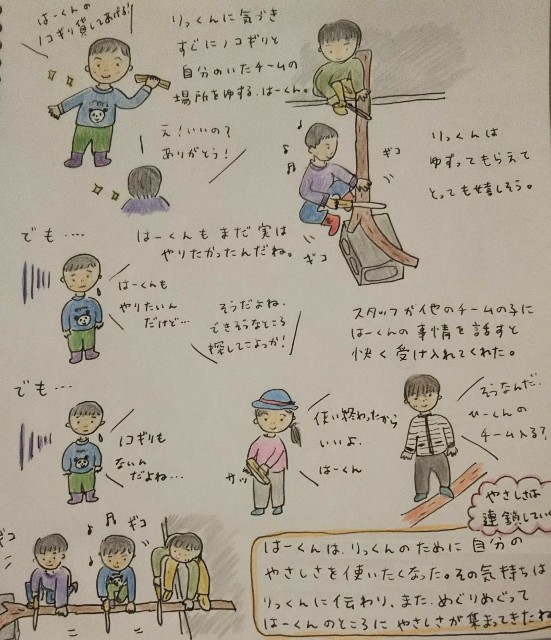 はーくんの
ノコギリ貸してあげる!
りっくんに気づき
すぐにノコギリと
自分のいたチームの
場所をゆずる、はーくん。
え!いいの?
ありがとう!
ギコ
ギコ
りっくんは
ゆずってもらえて
とっても嬉しそう。
でも・・・・
はーくんもまだ実は
やりたかったんだね。
はーくんも
やりたいん
だけど…
そうだよね、
できそうなところ
探してこよっか!
スタッフが他のチームの子に
はーくんの事情を話すと
快く受け入れてくれた。
でも・・・
ノコギリも
ないん
だよね…
使い終わったから
いいよ、
はーくん
サッ
そうなんだ、
ひーくんの
チーム入る?
ギコ
ギコ
やさしさは
連鎖していく
はーくんは、りっくんのために自分の
やさしさを使いたくなった。その気持ちは
りっくんに伝わり、また、めぐりめぐって
はーくんのところにやさしさが集まってきたね